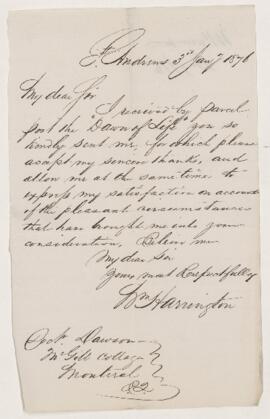 St Andrews 3rd Jany 1876
My dear Sir
I received by parcel
post the "Dawn of Life" you so
kindly sent me, for which please
accept my sincere thanks, and
allow me at the same time to
express my satisfaction on account
of the pleasant circumstances
that has brought me into your
consideration, Believe me
My dear Sir
Yours most Respectfully
Wm Harrington
Dawson
McGill College
Montreal
P2